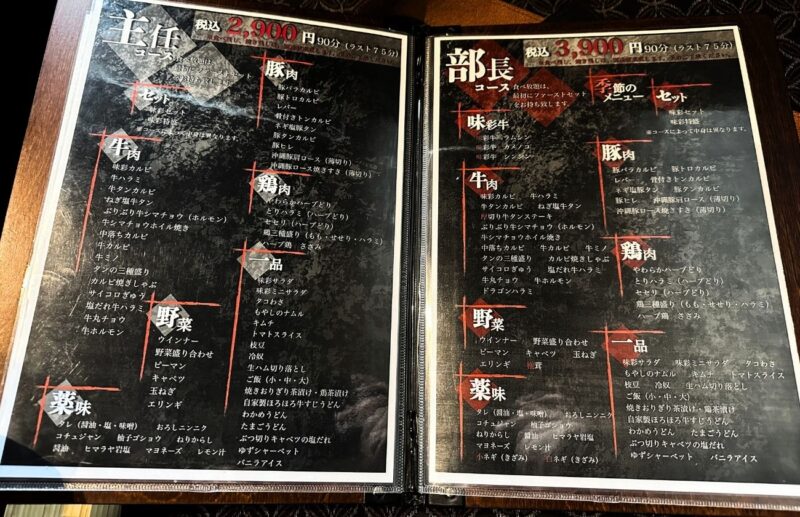 主任
コース
税込 2,900円 90分（ラスト75分）
セット
味彩セット
味彩特盛
牛肉
味彩カルビ
牛ハラミ
牛タンカルビ
ねぎ塩牛タン
ぷりぷり牛シマチョウ（ホルモン）
牛シマチョウホイル焼き
中落ちカルビ
牛カルビ
牛ミノ
タンの三種盛り
カルビ焼きしゃぶ
サイコロぎゅう
塩だれ牛ハラミ
牛丸チョウ
牛ホルモン
野菜
ウインナー
野菜盛り合わせ
ピーマン
キャベツ
玉ねぎ
エリンギ
薬味
タレ（醤油・塩・味噌） おろしニンニク
コチュジャン 柚子ゴショウ ねりからし
醤油 ヒマラヤ岩塩 マヨネーズ レモン汁
豚肉
豚バラカルビ
豚トロカルビ
レバー
骨付きトンカルビ
ネギ塩豚タン
豚タンカルビ
豚ヒレ
沖縄豚肩ロース（薄切り）
沖縄豚ロース焼きすき（薄切り）
鶏肉
やわらかハーブどり
とりハラミ（ハーブどり）
セセリ（ハーブどり）
鶏三種盛り（もも・せせり・ハラミ）
ハーブ鶏 ささみ
一品
味彩サラダ
味彩ミニサラダ
タコわさ
もやしのナムル
キムチ
トマトスライス
枝豆
冷奴
生ハム切り落とし
ご飯（小・中・大）
焼きおりぎり茶漬け・鶏茶漬け
自家製ほろほろ牛すじうどん
わかめうどん
たまごうどん
ぶつ切りキャベツの塩だれ
ゆずシャーベット
バニラアイス
部長
コース
税込 3,900円 90分（ラスト75分）
食べ放題は、
最初にファーストセット
をお持ち致します。
季節の
メニュー
セット
味彩セット
味彩特盛
※コースによって中身は異なります。
味彩牛
味彩牛 ラムシン
味彩牛 カメノコ
味彩牛 シンシン
牛肉
味彩カルビ 牛ハラミ
牛タンカルビ ねぎ塩牛タン
厚切り牛タンステーキ
ぷりぷり牛シマチョウ（ホルモン）
牛シマチョウホイル焼き
中落ちカルビ 牛カルビ 牛ミノ
タン三種盛り カルビ焼きしゃぶ
サイコロぎゅう 塩だれ牛ハラミ
牛丸チョウ 牛ホルモン
ドラゴンハラミ
野菜
ウインナー 野菜盛り合わせ
ピーマン キャベツ 玉ねぎ
エリンギ 椎茸
薬味
タレ（醤油・塩・味噌） おろしニンニク
コチュジャン 柚子ゴショウ
ねりからし 醤油 ヒマラヤ岩塩
マヨネーズ レモン汁
小ネギ（きざみ） 白ネギ（きざみ）
豚肉
豚バラカルビ 豚トロカルビ
レバー 骨付きトンカルビ
ネギ塩豚タン 豚タンカルビ
豚ヒレ 沖縄豚肩ロース（薄切り）
沖縄豚ロース焼きすき（薄切り）
鶏肉
やわらかハーブどり
とりハラミ（ハーブどり）
セセリ（ハーブどり）
鶏三種盛り（もも・せせり・ハラミ）
ハーブ鶏 ささみ
一品
味彩サラダ 味彩ミニサラダ タコわさ
もやしのナムル キムチ トマトスライス
枝豆 冷奴 生ハム切り落とし
ご飯（小・中・大）
焼きおりぎり茶漬け・鶏茶漬け
自家製ほろほろ牛すじうどん
わかめうどん たまごうどん
ぶつ切りキャベツの塩だれ
ゆずシャーベット バニラアイス